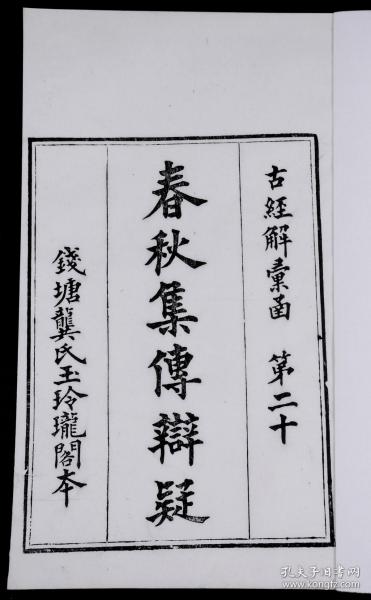 古經解彙函 第二十
春秋集傳辯疑
錢塘龔氏玉玲瓏閣本
孔夫子旧书网
kongfz.com